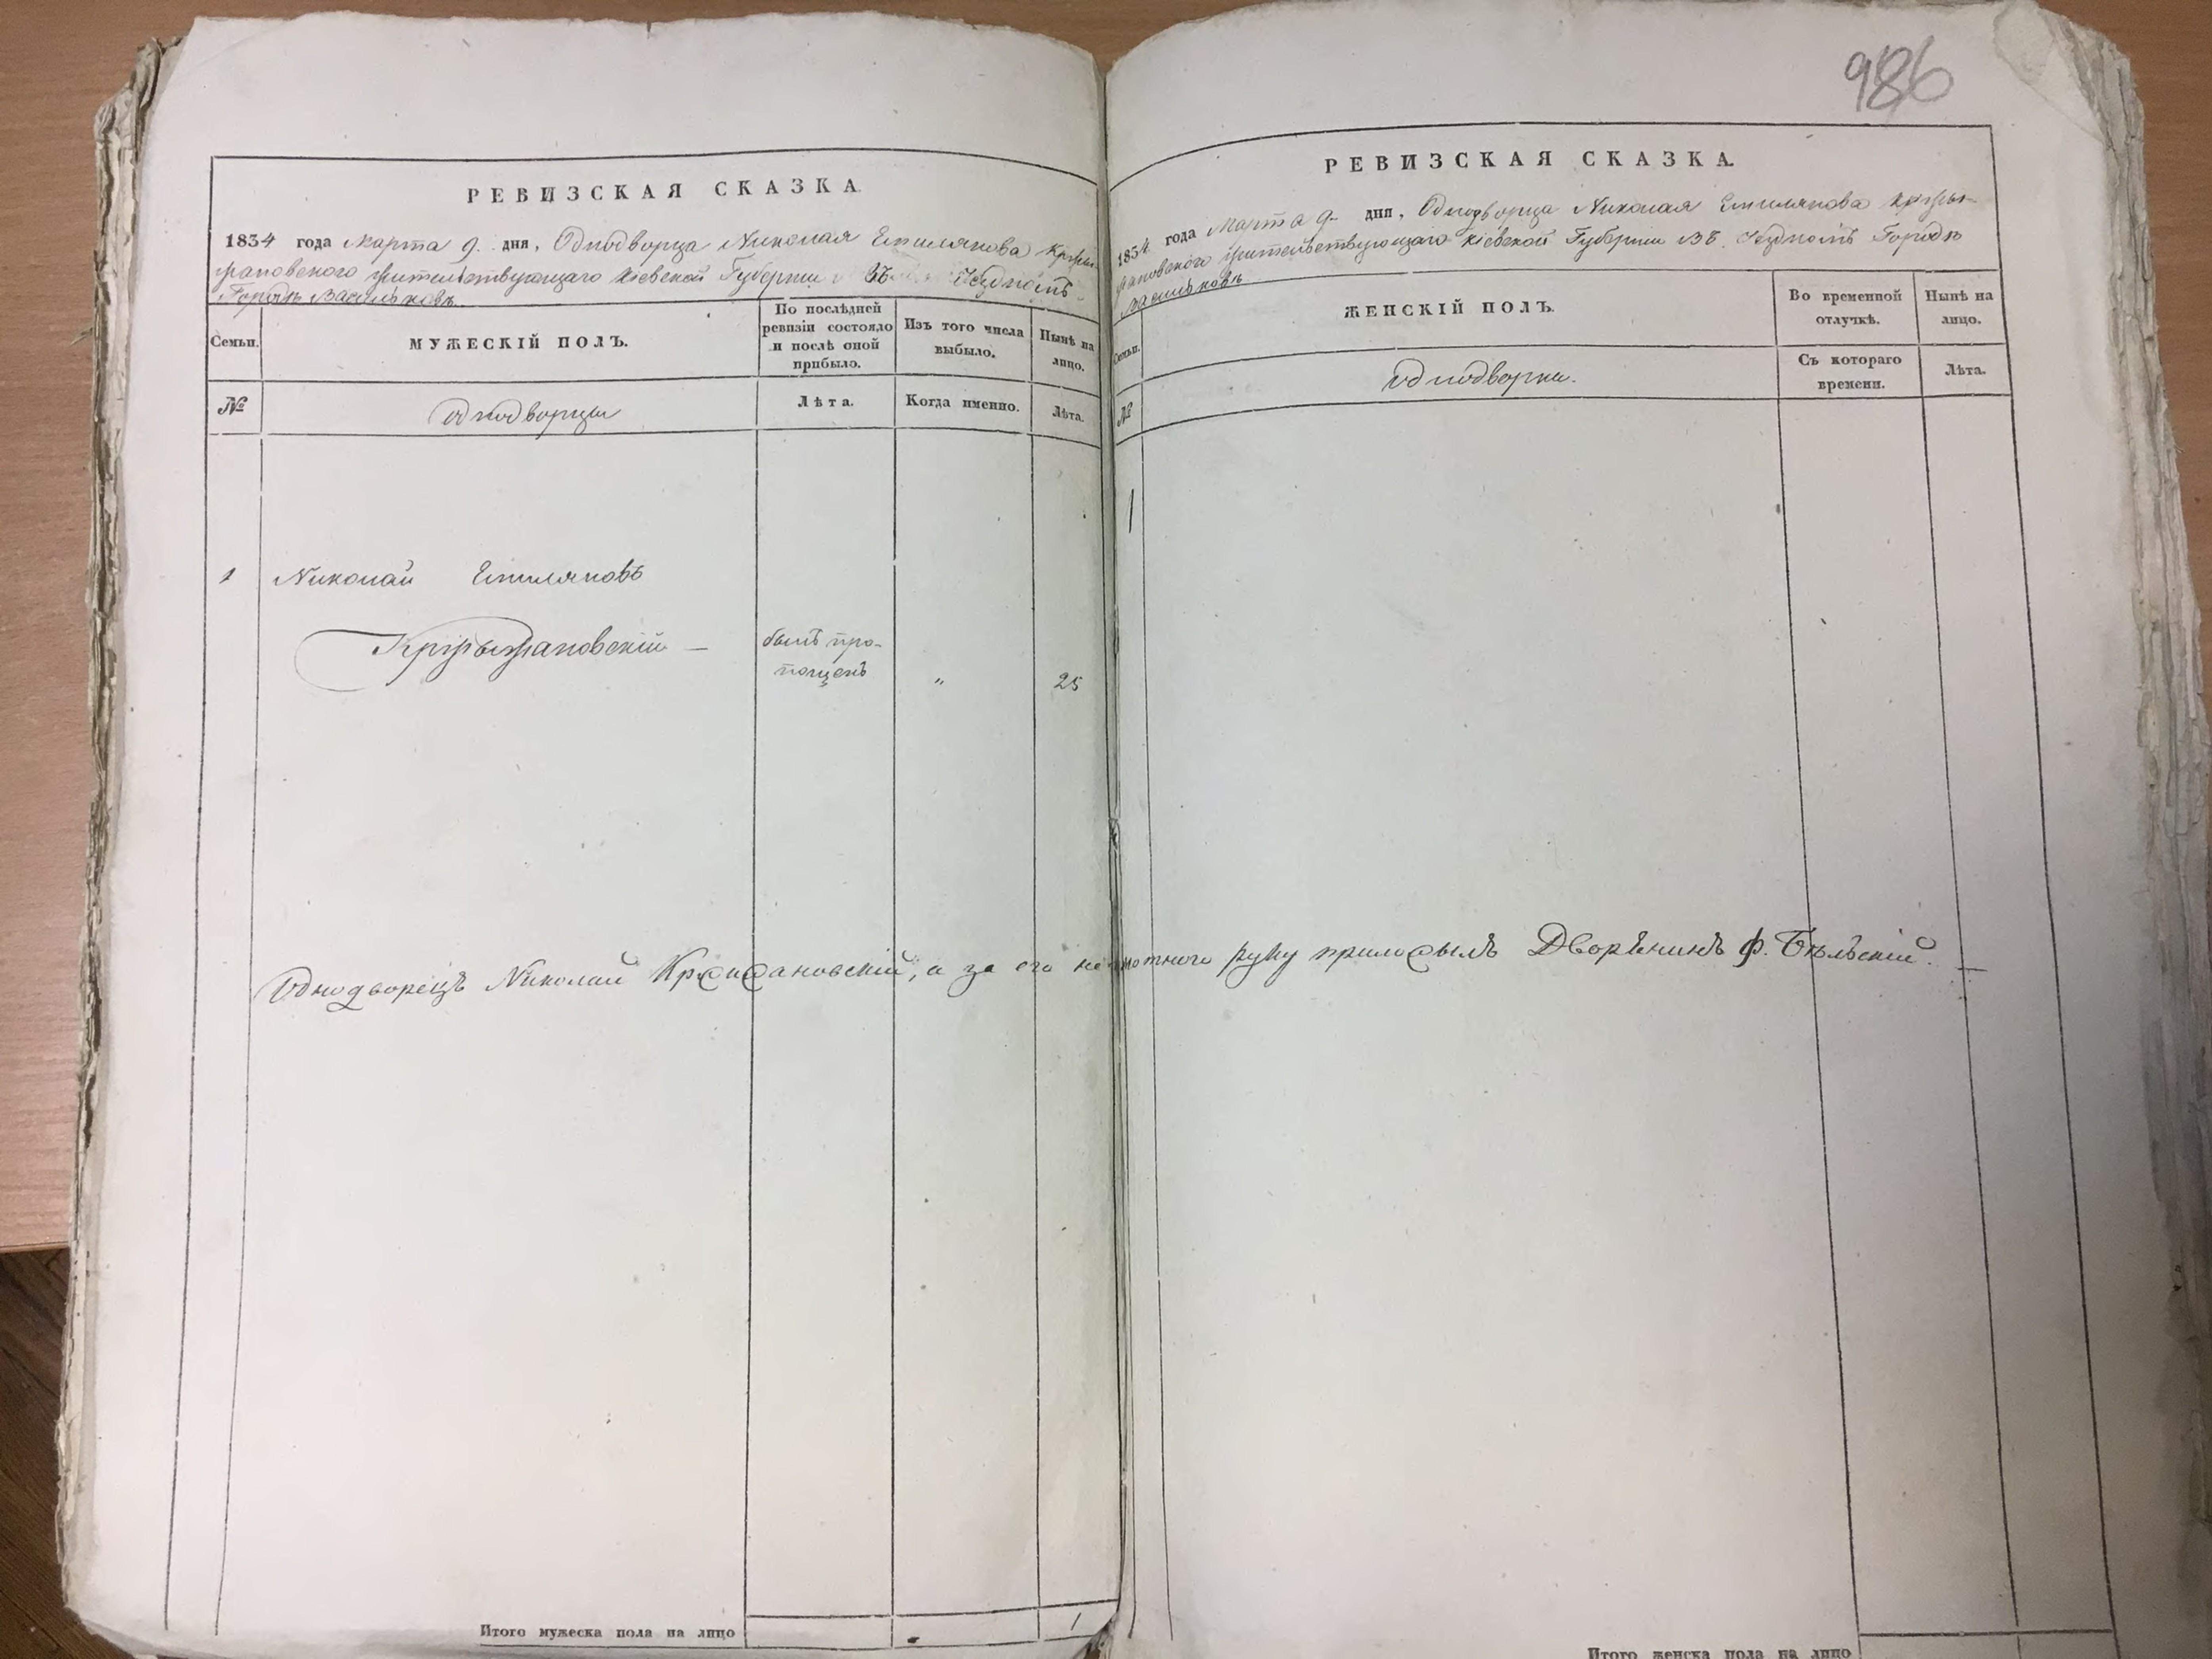 986
РЕВИЗСКАЯ СКАЗКА.
1834 года Марта 9. дня, Однодворца Николая Емилянова Кржы-
жановского жительствующаго Кіевской Губерніи въ Уездномъ
Городѣ Васильковѣ.
Семьи.
МУЖЕСКІЙ ПОЛЪ.
По послѣдней
ревизіи состояло
и послѣ оной
прибыло.
Изъ того числа
выбыло.
Нынѣ на
лицо.
№
однодворцы
Лѣта.
Когда именно.
Лѣта.
1 Николай Емиляновъ
Кржыжановскій —
былъ про-
пущенъ
"
25
Итого мужеска пола на лицо
1
РЕВИЗСКАЯ СКАЗКА.
1834 года Марта 9. дня, Однодворца Николая Емилянова Кржы-
жановского жительствующаго Кіевской Губерніи въ Уездномъ Городѣ
Васильковѣ.
Семьи.
ЖЕНСКІЙ ПОЛЪ.
Во временной
отлучкѣ.
Нынѣ на
лицо.
№
однодворки.
Съ котораго
времени.
Лѣта.
1
Однодворецъ Николай Кржижановскій, а за его руку приложылъ Дворѣнинъ Ф. Бѣльскій.
Итого женска пола на лицо